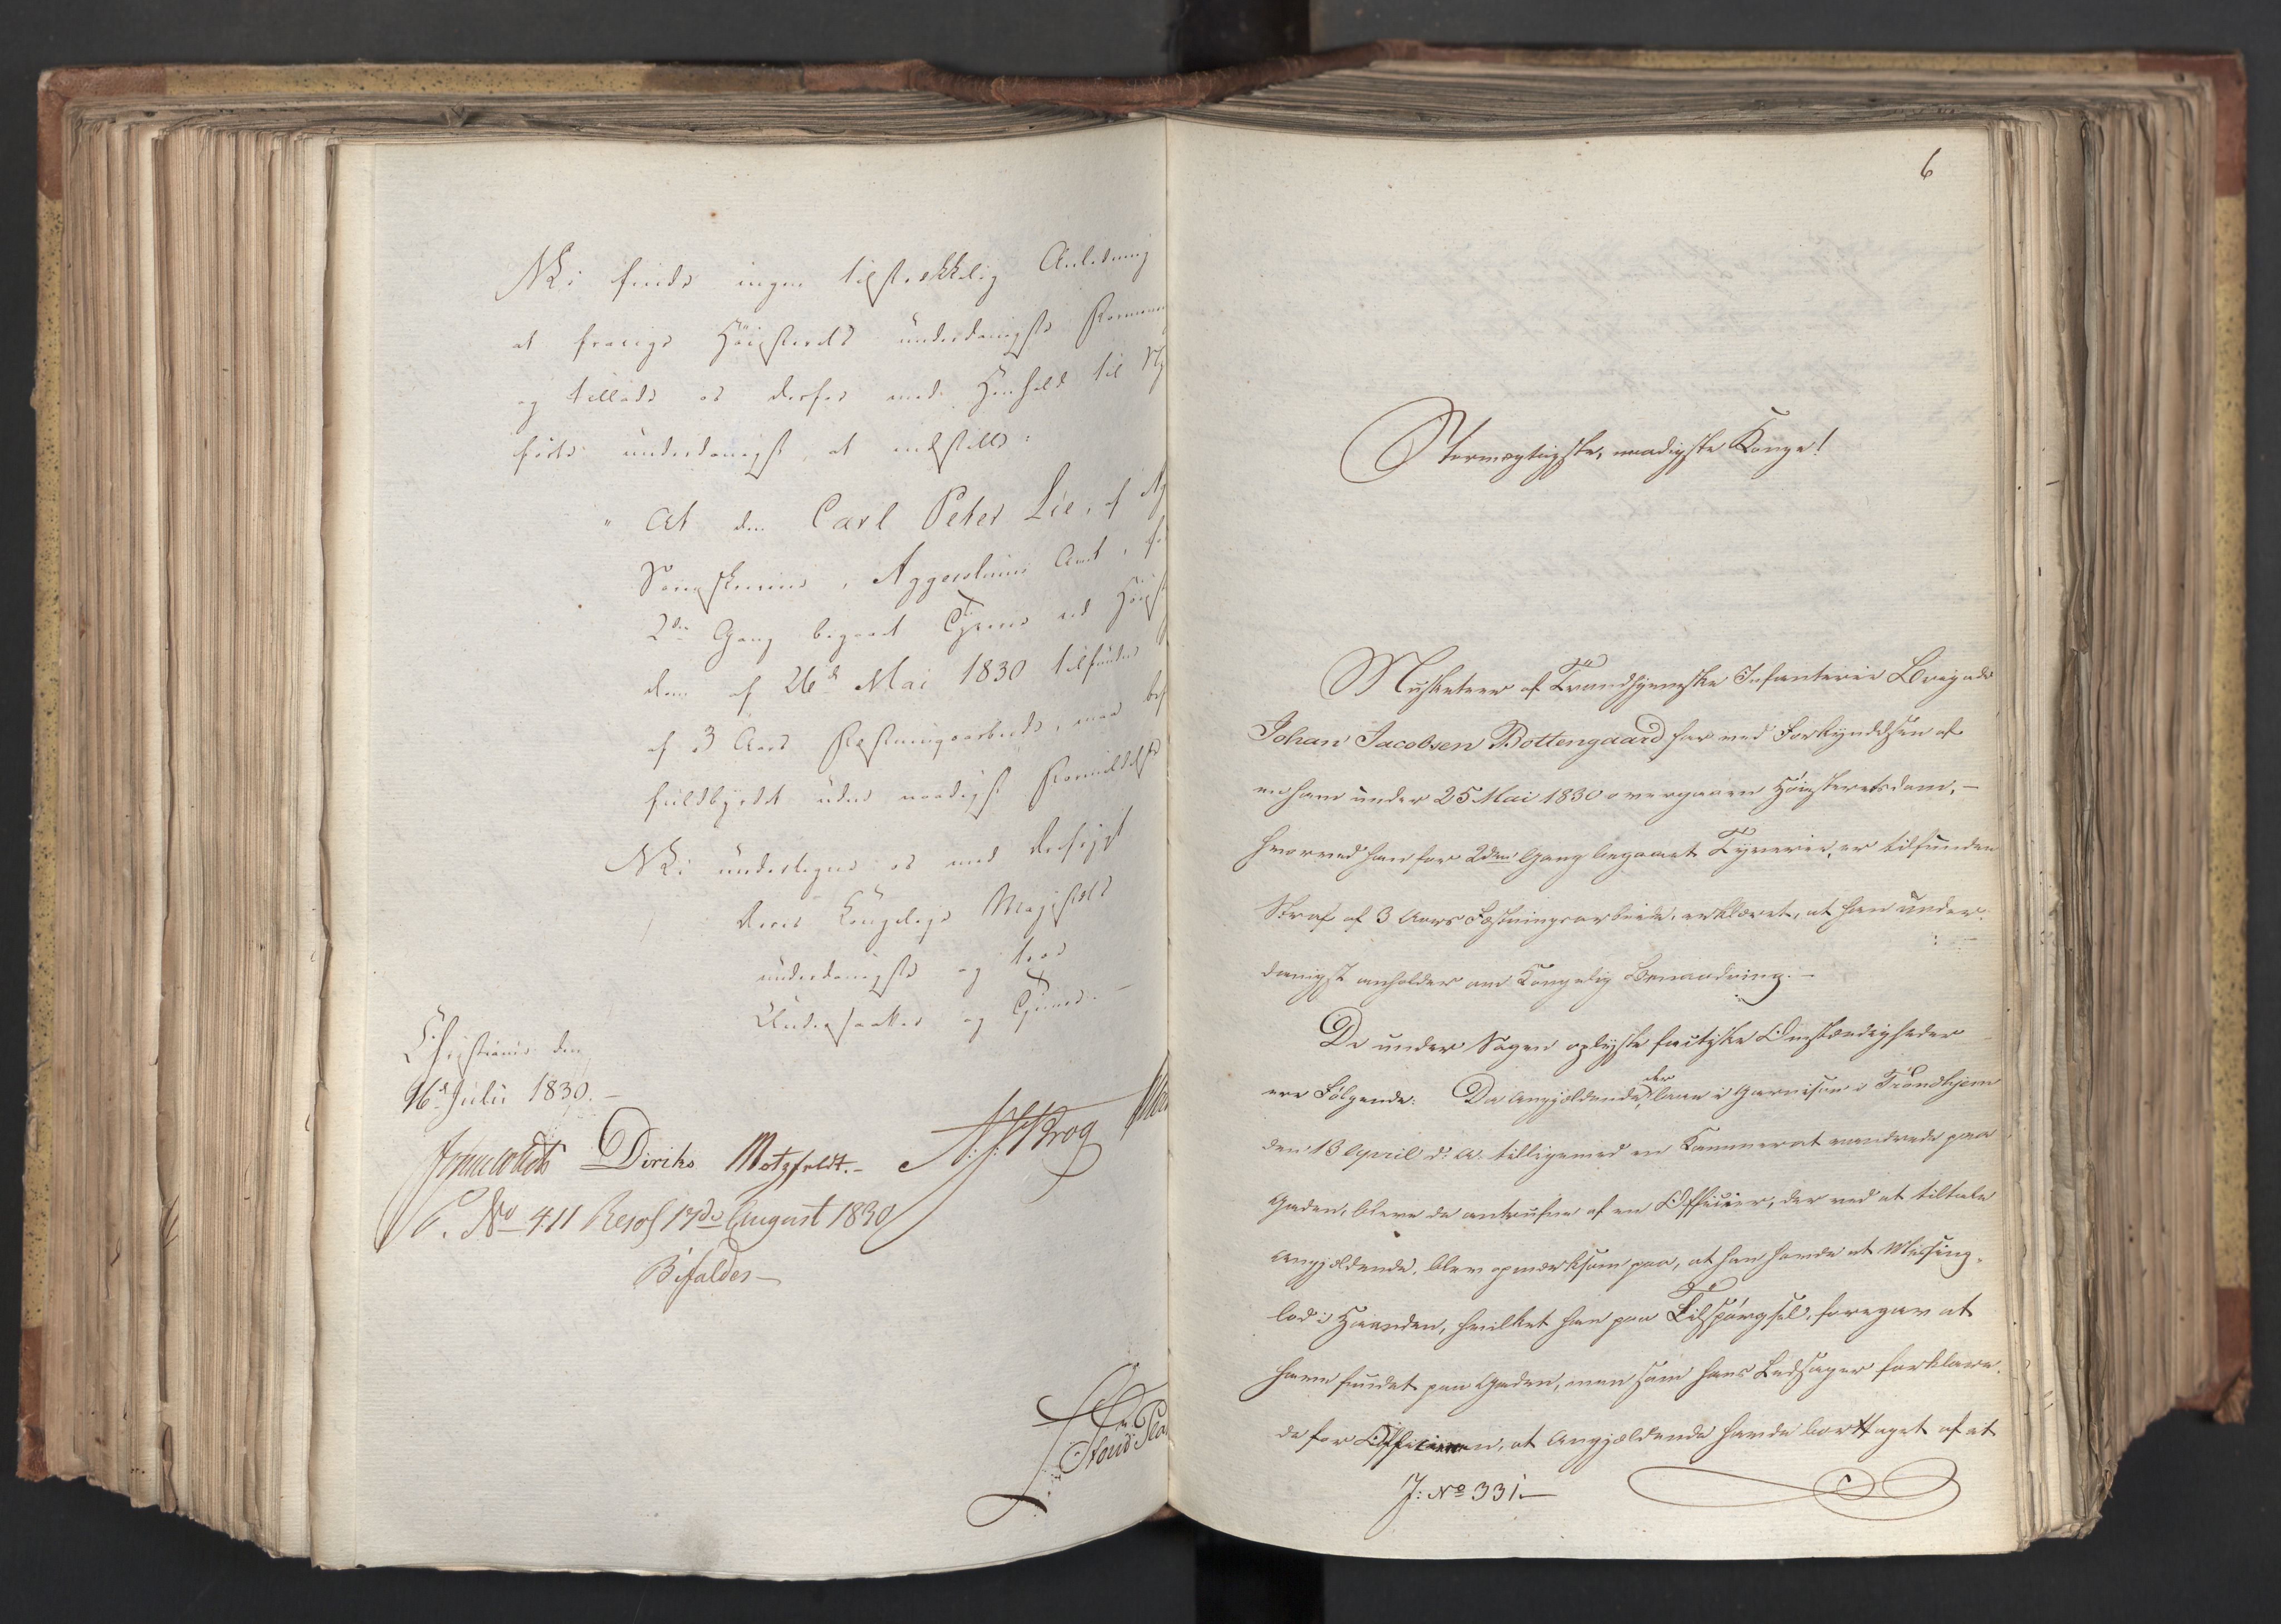 Vi finde ingen tilstrækkelig Anledning
at fravige Høiesterets underdanigste
og tillade os derfor med Henhold til
underdanigst at indstille:
" At den Carl Peter Lie, af
Sorenskriverie, Aggershuus Amt, for
2den Gang begaaet Tyverie ved Høieste
dom af 26d Mai 1830 tilfundne
af 3 Aars Fæstningsarbeide, maa
fuldbyrdet uden naadigst Formildelse
Vi undertegne os med Dybeste
Deres Kongelige Majestæts
underdanigste og troe
Undersaatter og Tjenere.
Christiania den
16d Julii 1830.-
Diriks Motzfeldt.- Krog
P. No 411 Resol 17de August 1830
Bifaldes-
6
Stormægtigste, naadigste Konge!
Musketeer af Trondhjemske Infanterie Brigade
Johan Jacobsen Bottengaard har ved Forkyndelsen af
en ham under 25 Mai 1830 overgaaen Høiesteretsdom,-
hvorved han for 2den Gang begaaet Tyverie, er tilfunden
Straf af 3 Aars Fæstningsarbeide, erklæret, at han under-
danigst anholder om Kongelig Benaadning.-
De under Sagen oplyste factiske Omstændigheder
ere Følgende: Da Angjældende, der laae i Garnison i Trondhjem
den 13 April d: A: tilligemed en Kammerat vandrede paa
Gaden, bleve de antrufne af en Officier, der ved at tiltale
Angjældende, blev opmærksom paa, at han havde et Messing-
lod i Haanden, hvilket han paa Tilspørgsel, foregav at
have fundet paa Gaden, men som hans Ledsager forklare-
de for Officieren, at Angjældende havde borttaget af et
J: No 331.-